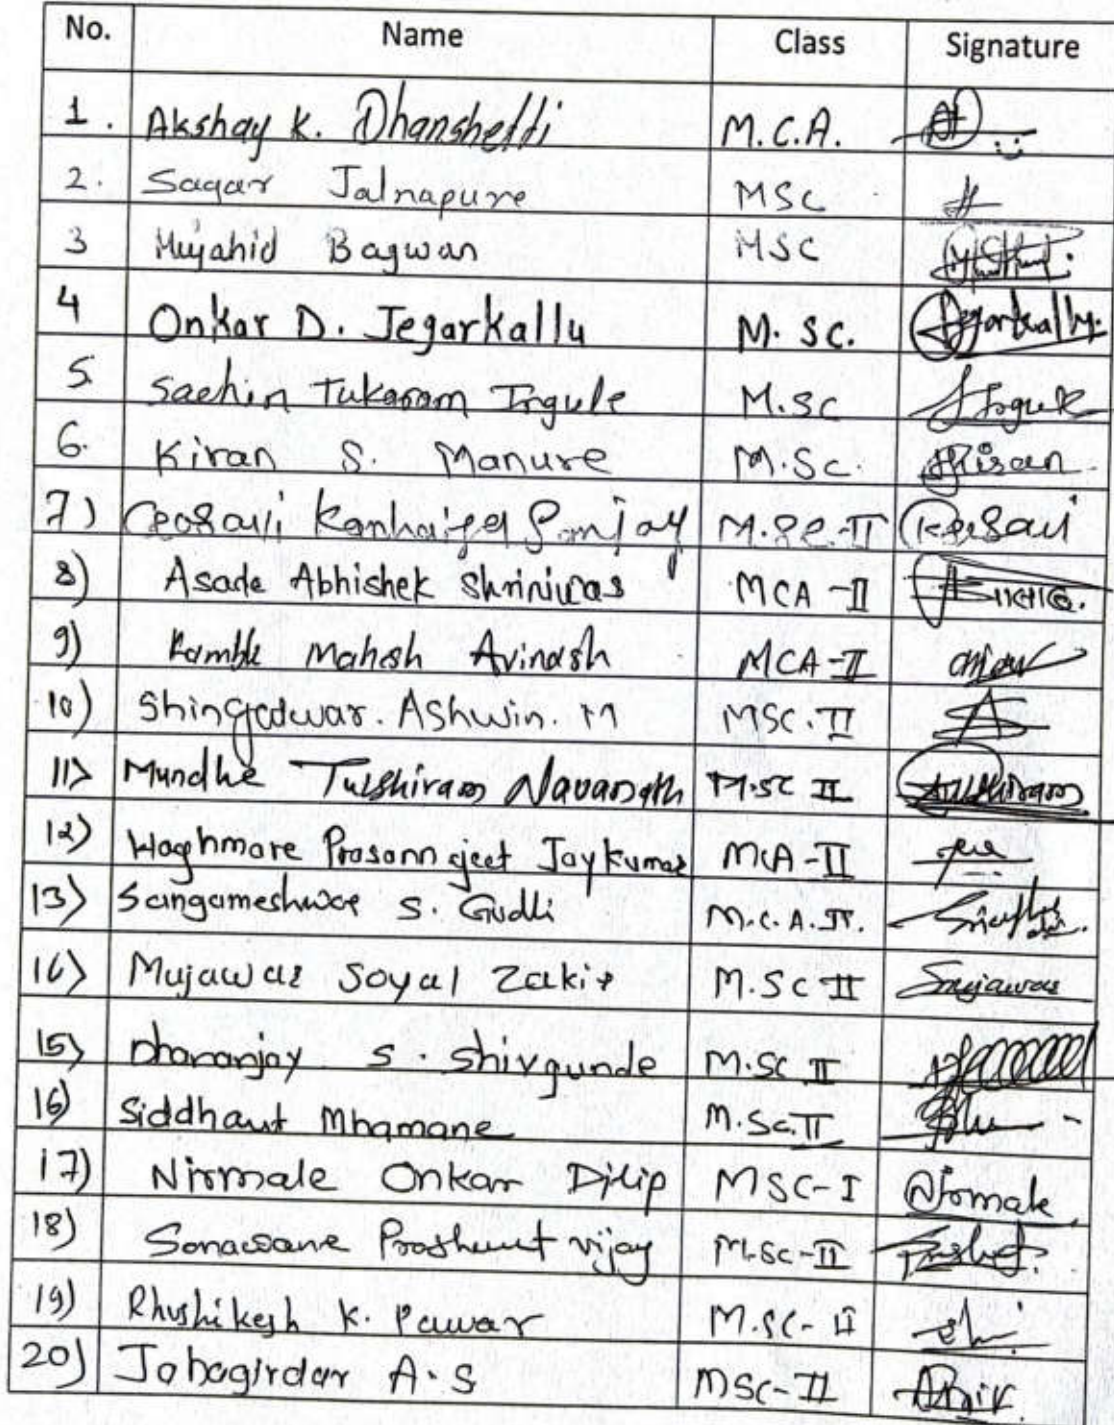 No. Name Class Signature
1. Akshay K. Dhanshetti M.C.A.
2. Sagar Jalnapure MSC
3 Mujahid Bagwan MSC
4 Onkar D. Jegarkallu M. SC. Jegarkallu
5. Sachin Tukaram Ingule M.SC Ingule
6. Kiran S. Manure M.Sc. Kiran
7) Gosavi Kanhaiya Sanjay M.SC-II Gosavi
8) Asade Abhishek Shriniwas MCA-II
9) Kamble Mahesh Avinash MCA-II
10) Shingadwar. Ashwin. M MSC-II
11) Mundhe Tulshiram Navanath M.SC II Tulshiram
12) Waghmare Prasannajeet Jaykumar MCA-II
13) Sangameshwar S. Gudli M.C.A.II.
14) Mujawar Soyal Zakir M.SC II Mujawar
15) Dhananjay S. Shivgunde M.SC II
16) Siddhant Mhamane M.Sc.II
17) Nirmale Onkar Dilip MSC-I Nirmale
18) Sonawane Prashant vijay M.SC-II
19) Rhushikesh K. Pawar M.SC-II
20) Jahagirdar A.S MSC-II